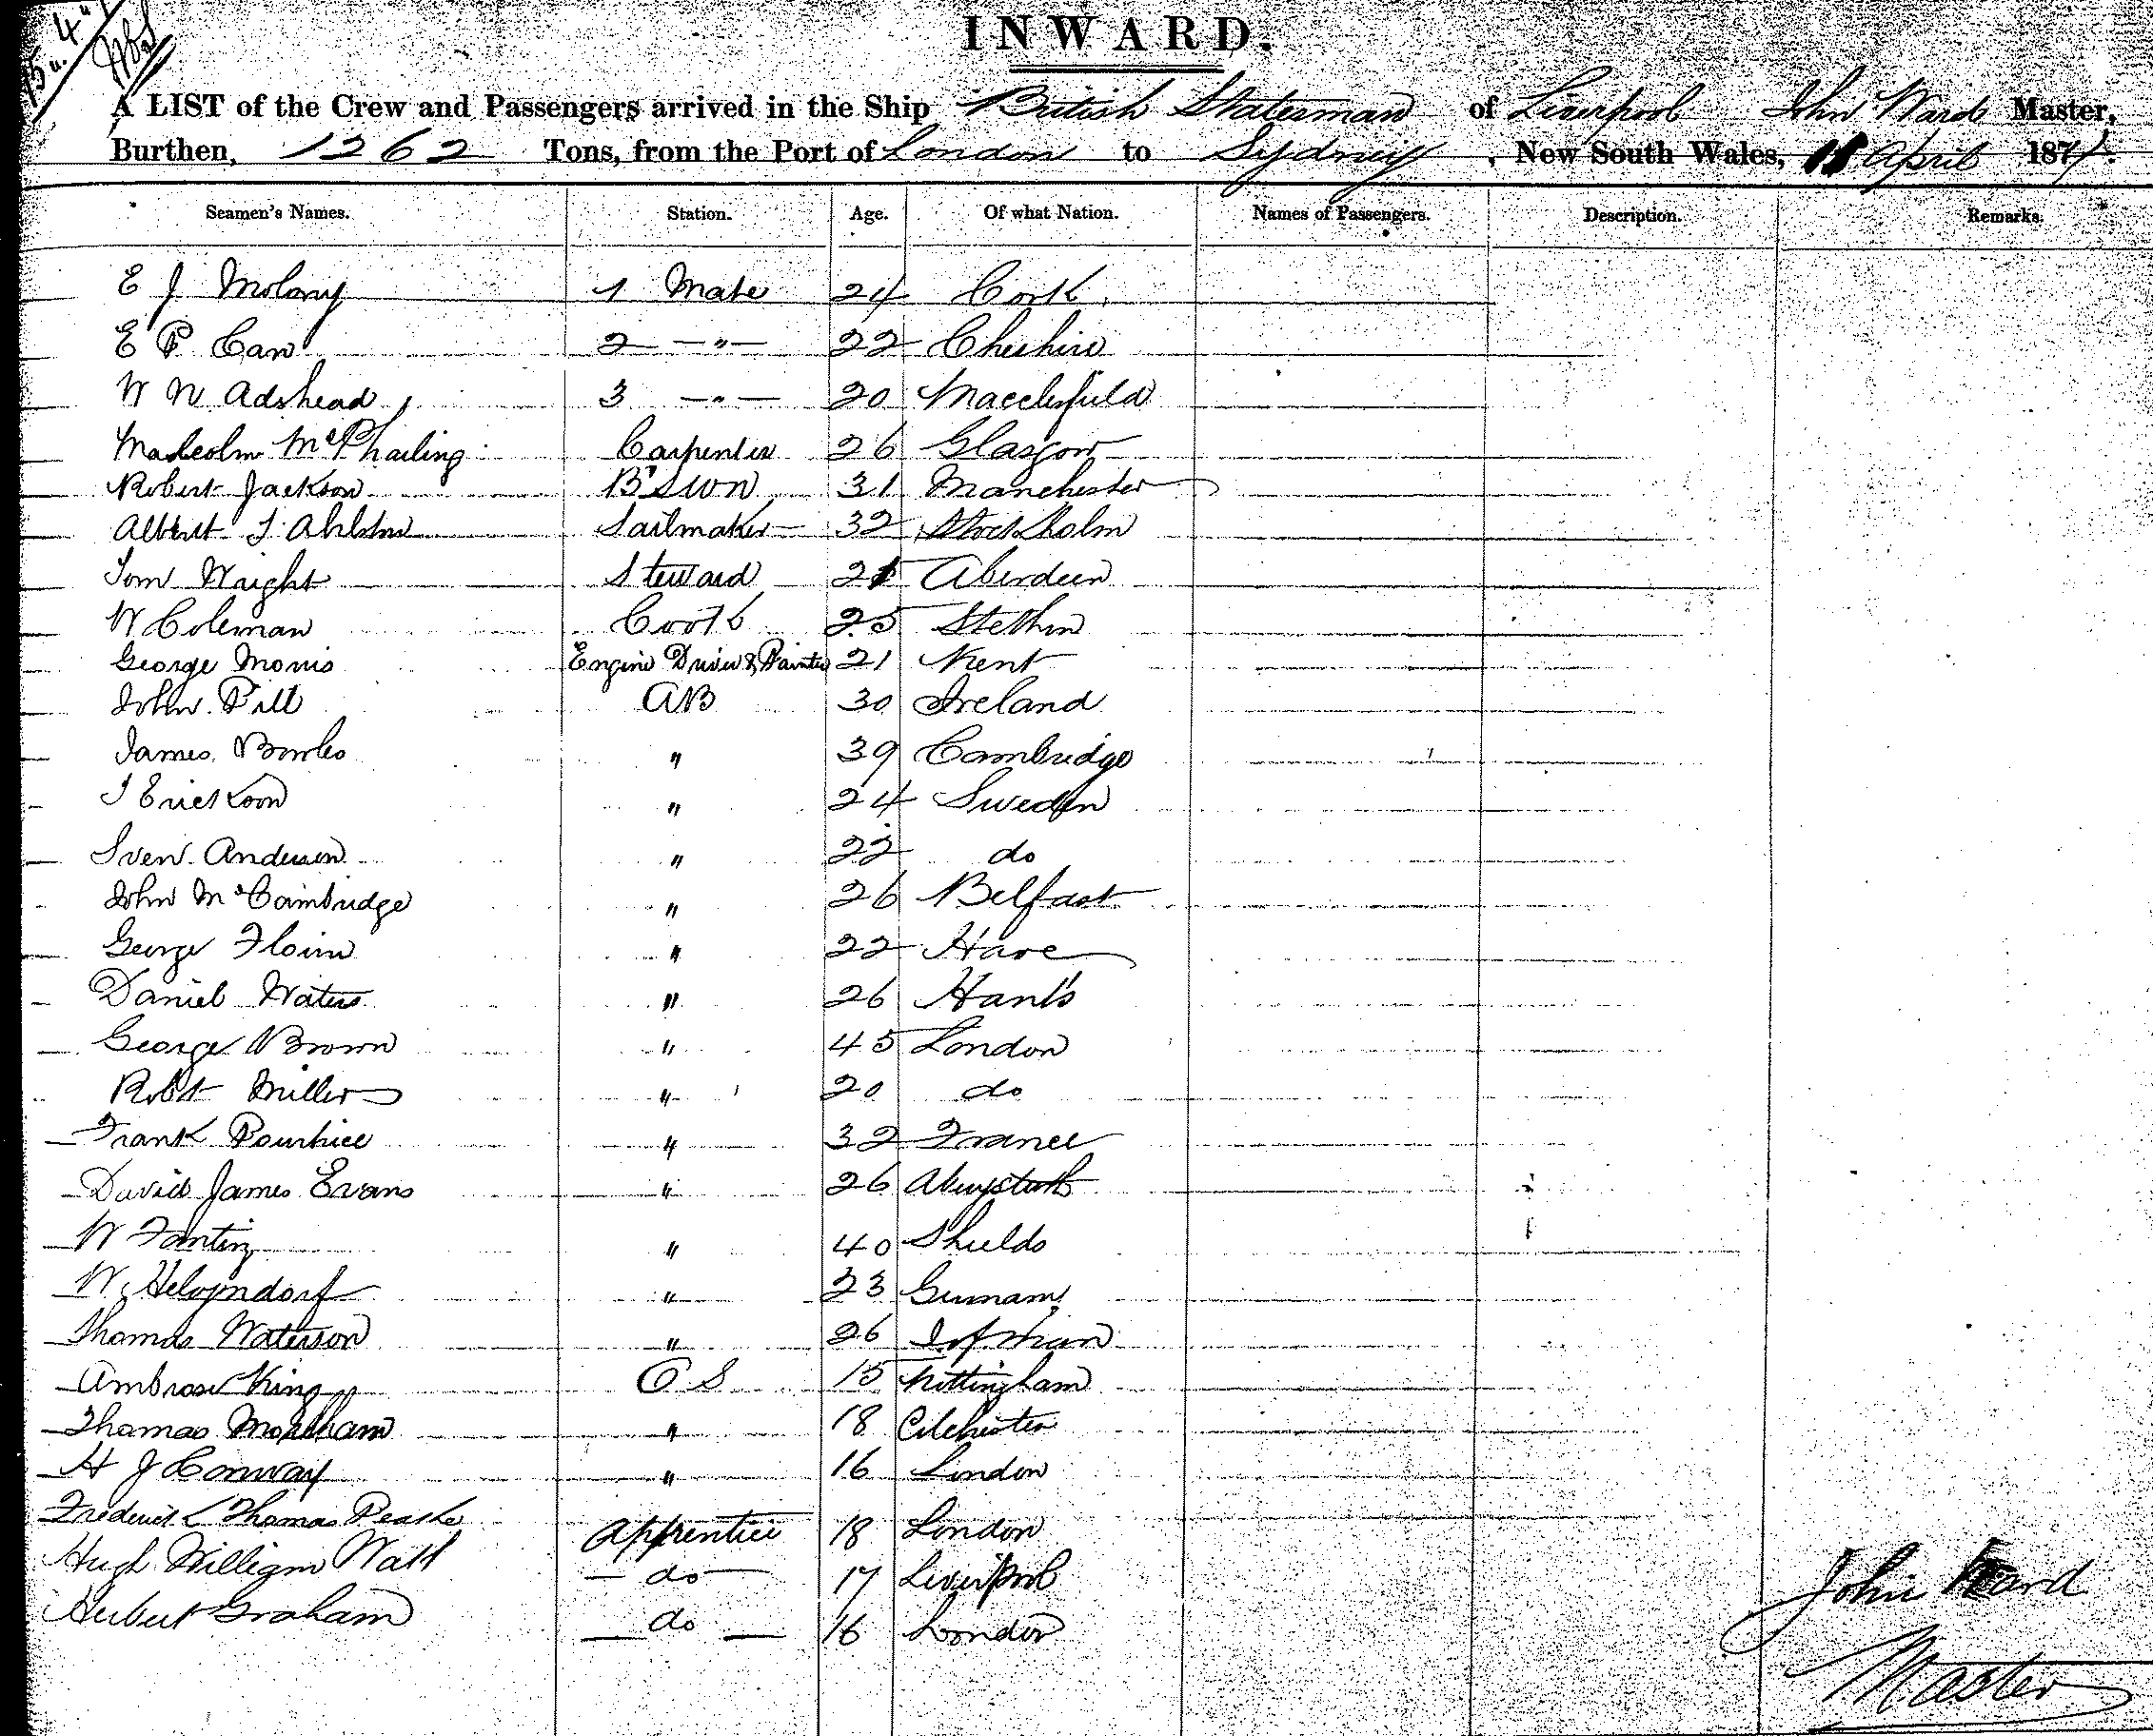 INWARD.
A LIST of the Crew and Passengers arrived in the Ship British Statesman of Liverpool John Ward Master,
Burthen, 1262 Tons, from the Port of London to Sydney, New South Wales, April 1874.
Seamen's Names. Station. Age. Of what Nation. Names of Passengers. Description. Remarks.
E J Molony 1 Mate 24 Cork
E P Carr 2 —"— 22 Cheshire
W W Adshead 3 —"— 20 Macclesfield
Malcolm McPhailing Carpenter 26 Glasgow
Robert Jackson B'swn 31 Manchester
Albert Sailmaker 32 Stockholm
Tom Waight Steward Aberdeen
W Coleman Cook 25 Stethin
George Morris Engine Driver & Painter 21 Kent
John Pill AB 30 Ireland
James Bowles " 39 Cambridge
J Erickson " 24 Sweden
Sven Andersen " 22 do
John McCambridge " 26 Belfast
George " 22 Havre
Daniel Waters " 26 Hants
George Brown " 45 London
Robt Miller " 20 do
Frank " 32 France
David James Evans " 26
W " 40 Shields
W " 23 Germany
Thomas Waterson " 26 I of Man
Ambrose King O S 15 Nottingham
Thomas " 18
H J Conway " 16 London
Frederick Thomas Peake Apprentice 18 London
Hugh William Watt — do — 17 Liverpool
Herbert Graham — do — 16 London
John Ward
Master